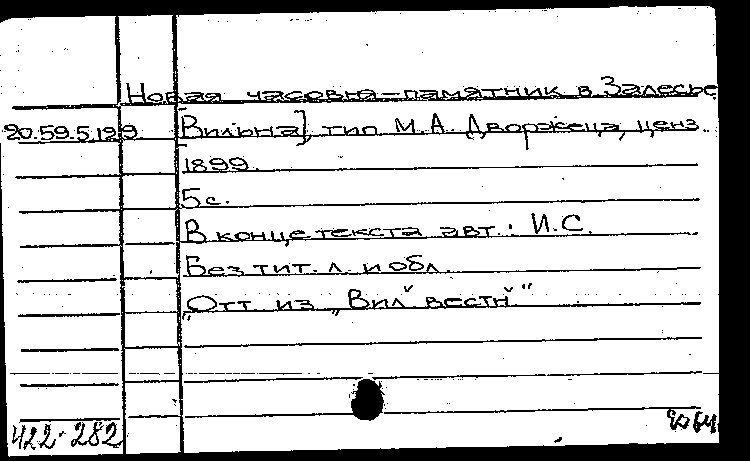 Новая часовня-памятник в Залесье
20.59.5.129 [Вильна], тип М.А. Дворжеца, ценз.
1899.
5 с.
В конце текста авт.: И.С.
Без тит. л. и обл.
"Отт. из „Вил вестн"
422-282